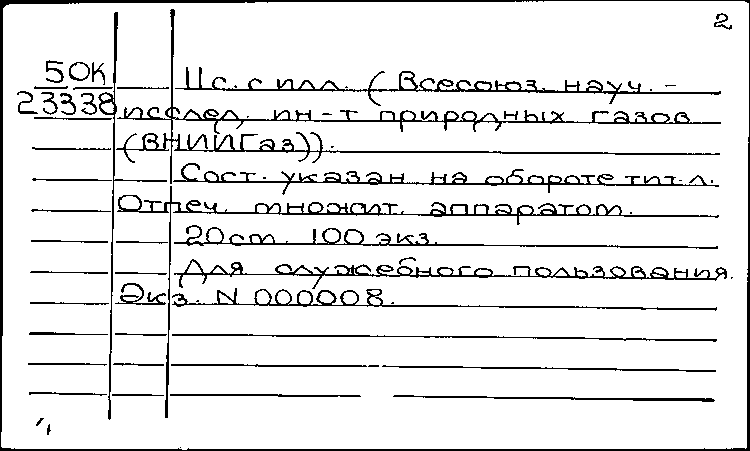 2
50К 11с. с илл. (Всесоюз. науч.-
23338 исслед. ин-т природных газов
(ВНИИГаз)).
Сост. указан на обороте тит. л.
Отпеч. множит. аппаратом.
20 см. 100 экз.
Для служебного пользования.
Экз. N 000008.